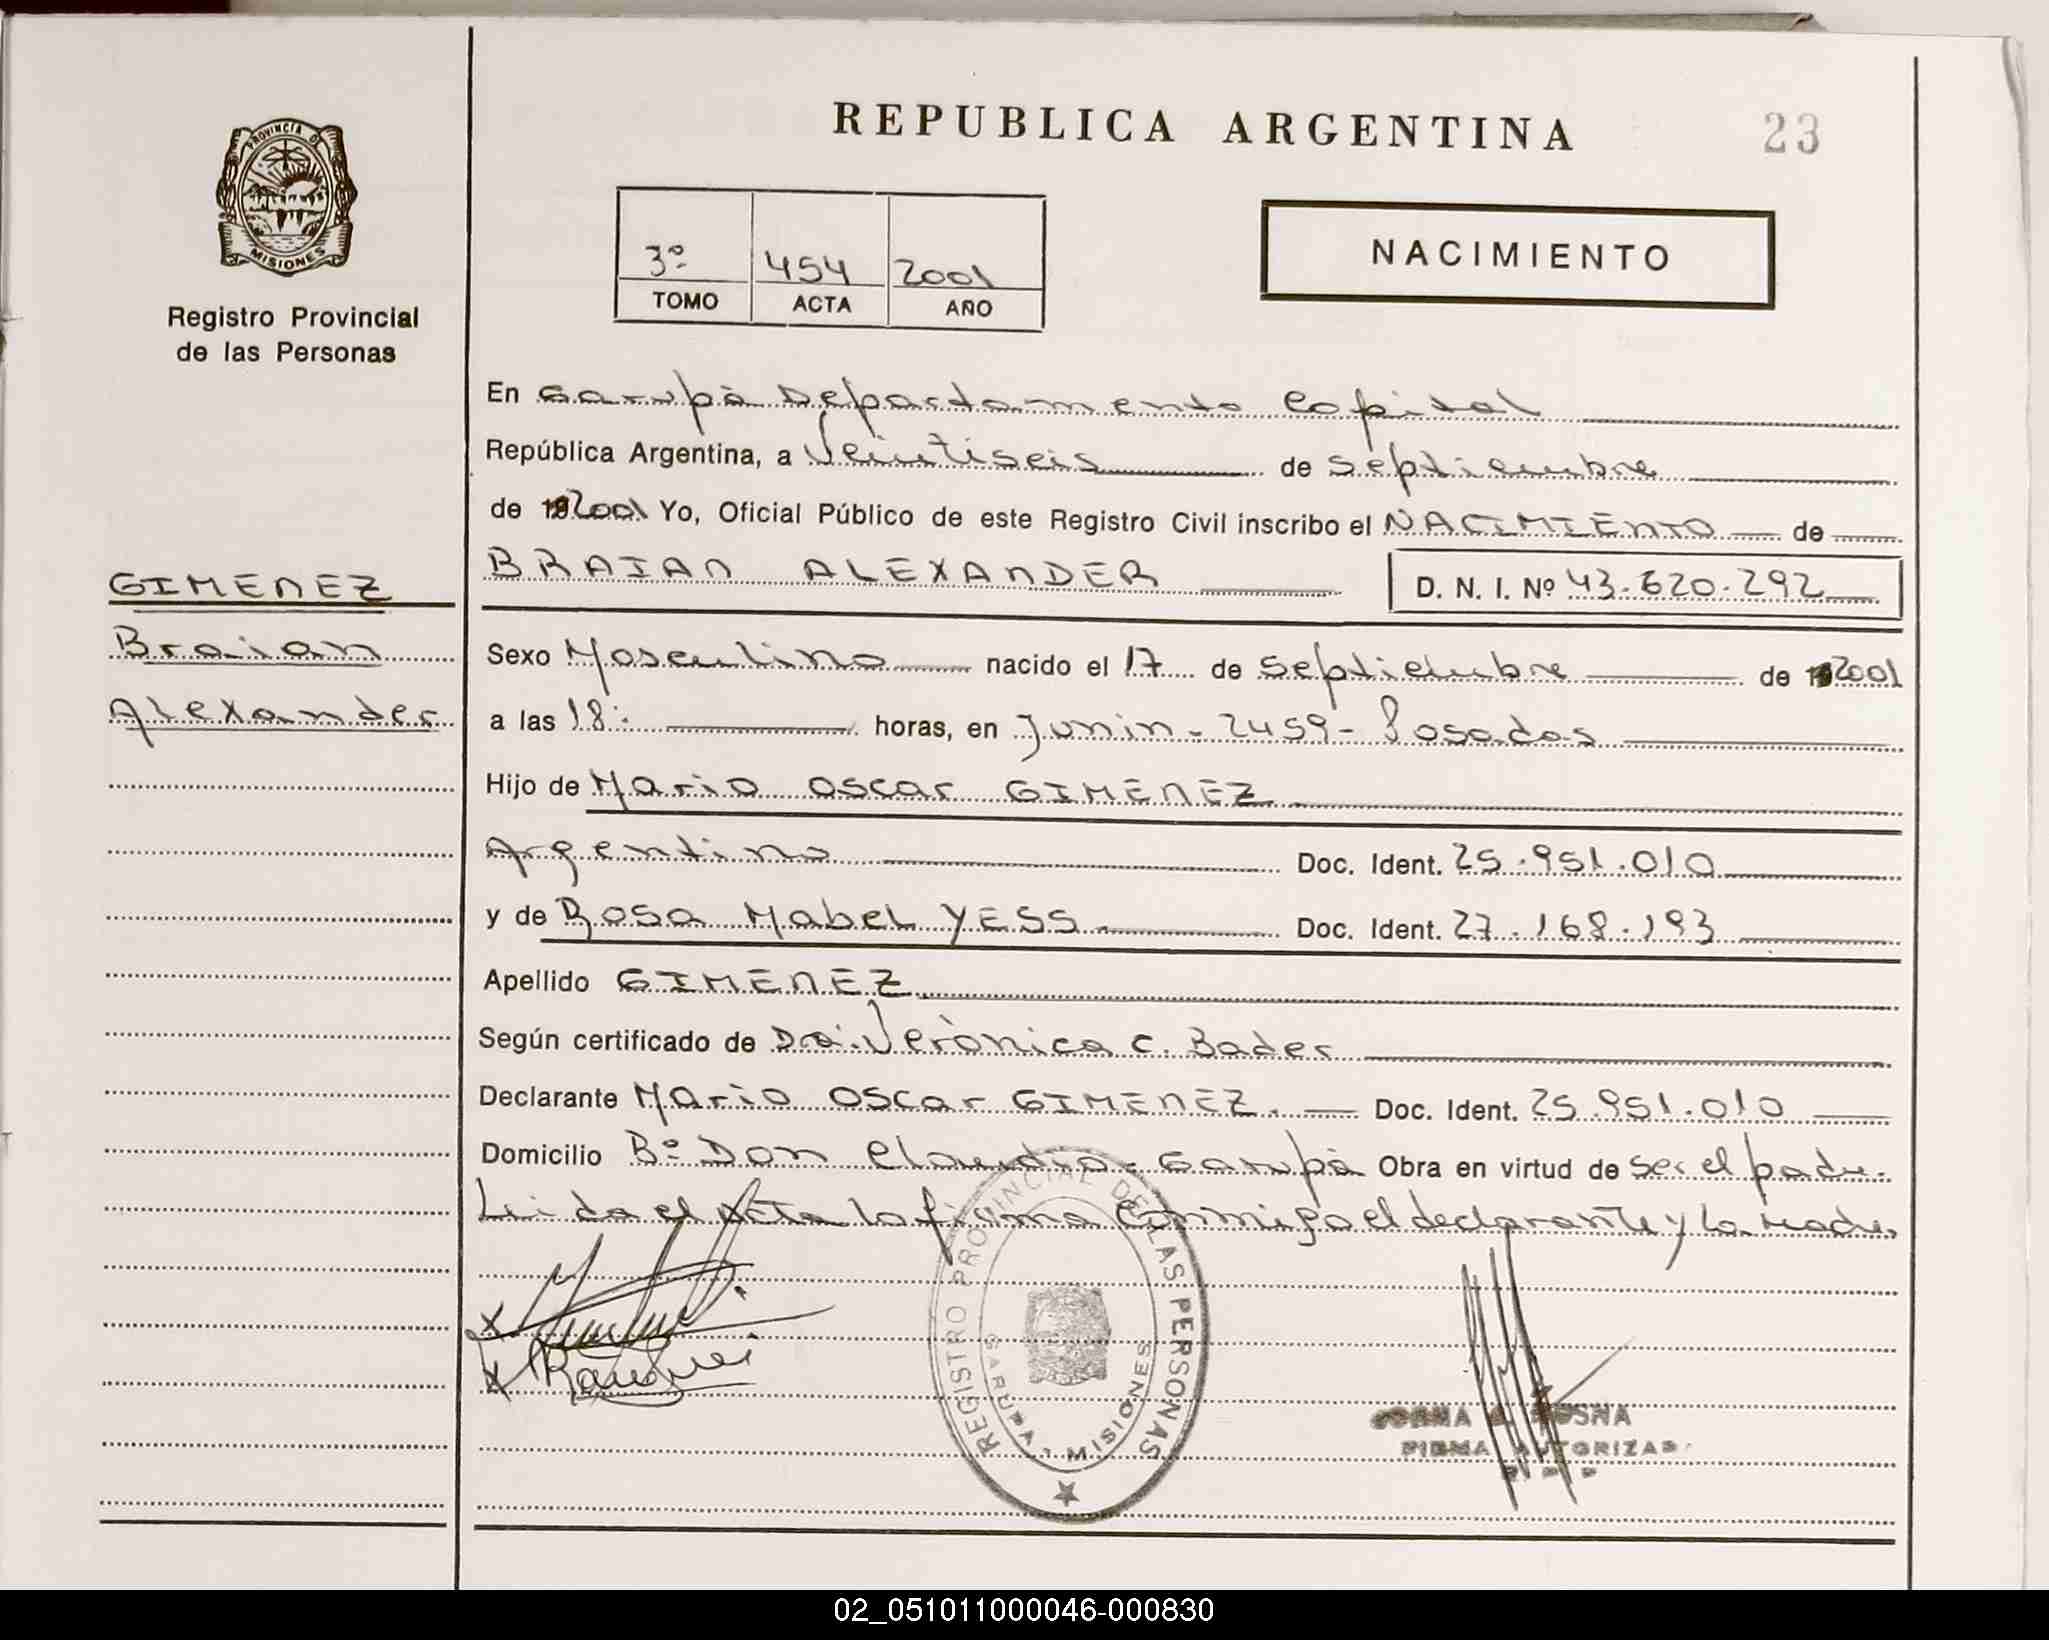 REPUBLICA ARGENTINA
23
PROVINCIA DE
MISIONES
Registro Provincial
de las Personas
3º 454 2001
TOMO ACTA AÑO
NACIMIENTO
En Garupà Departamento Capital
República Argentina, a Veintiseis de Septiembre
de 192001 Yo, Oficial Público de este Registro Civil inscribo el NACIMIENTO de
BRAIAN ALEXANDER D. N. I. Nº 43.620.292
GIMENEZ
Braian
Alexander
Sexo Masculino nacido el 17 de Septiembre de 2001
a las 18: horas, en Junin - 2459 - Posadas
Hijo de Mario Oscar GIMENEZ
Argentino Doc. Ident. 25.951.010
y de Rosa Mabel YESS Doc. Ident. 27.168.193
Apellido GIMENEZ
Según certificado de Dra. Verònica C. Bader
Declarante Mario Oscar GIMENEZ. Doc. Ident. 25.951.010
Domicilio Bº Don Claudio - Garupà Obra en virtud de ser el padre.
Leida el Acta la firma conmigo el declarante y la madre
REGISTRO PROVINCIAL DE LAS PERSONAS
MISIONES
FIRMA AUTORIZAD
02_051011000046-000830